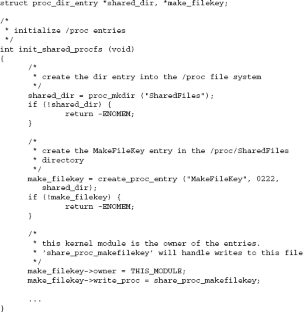 struct proc_dir_entry *shared_dir, *make_filekey;
/*
 * initialize /proc entries
 */
int init_shared_procfs (void)
{
/*
 * create the dir entry into the /proc file system
 */
shared_dir = proc_mkdir ("SharedFiles");
if (!shared_dir) {
return -ENOMEM;
}
/*
 * create the MakeFileKey entry in the /proc/SharedFiles
 * directory
 */
make_filekey = create_proc_entry ("MakeFileKey", 0222,
shared_dir);
if (!make_filekey) {
return -ENOMEM;
}
/*
 * this kernel module is the owner of the entries.
 * 'share_proc_makefilekey' will handle writes to this file
 */
make_filekey->owner = THIS_MODULE;
make_filekey->write_proc = share_proc_makefilekey;
...
}